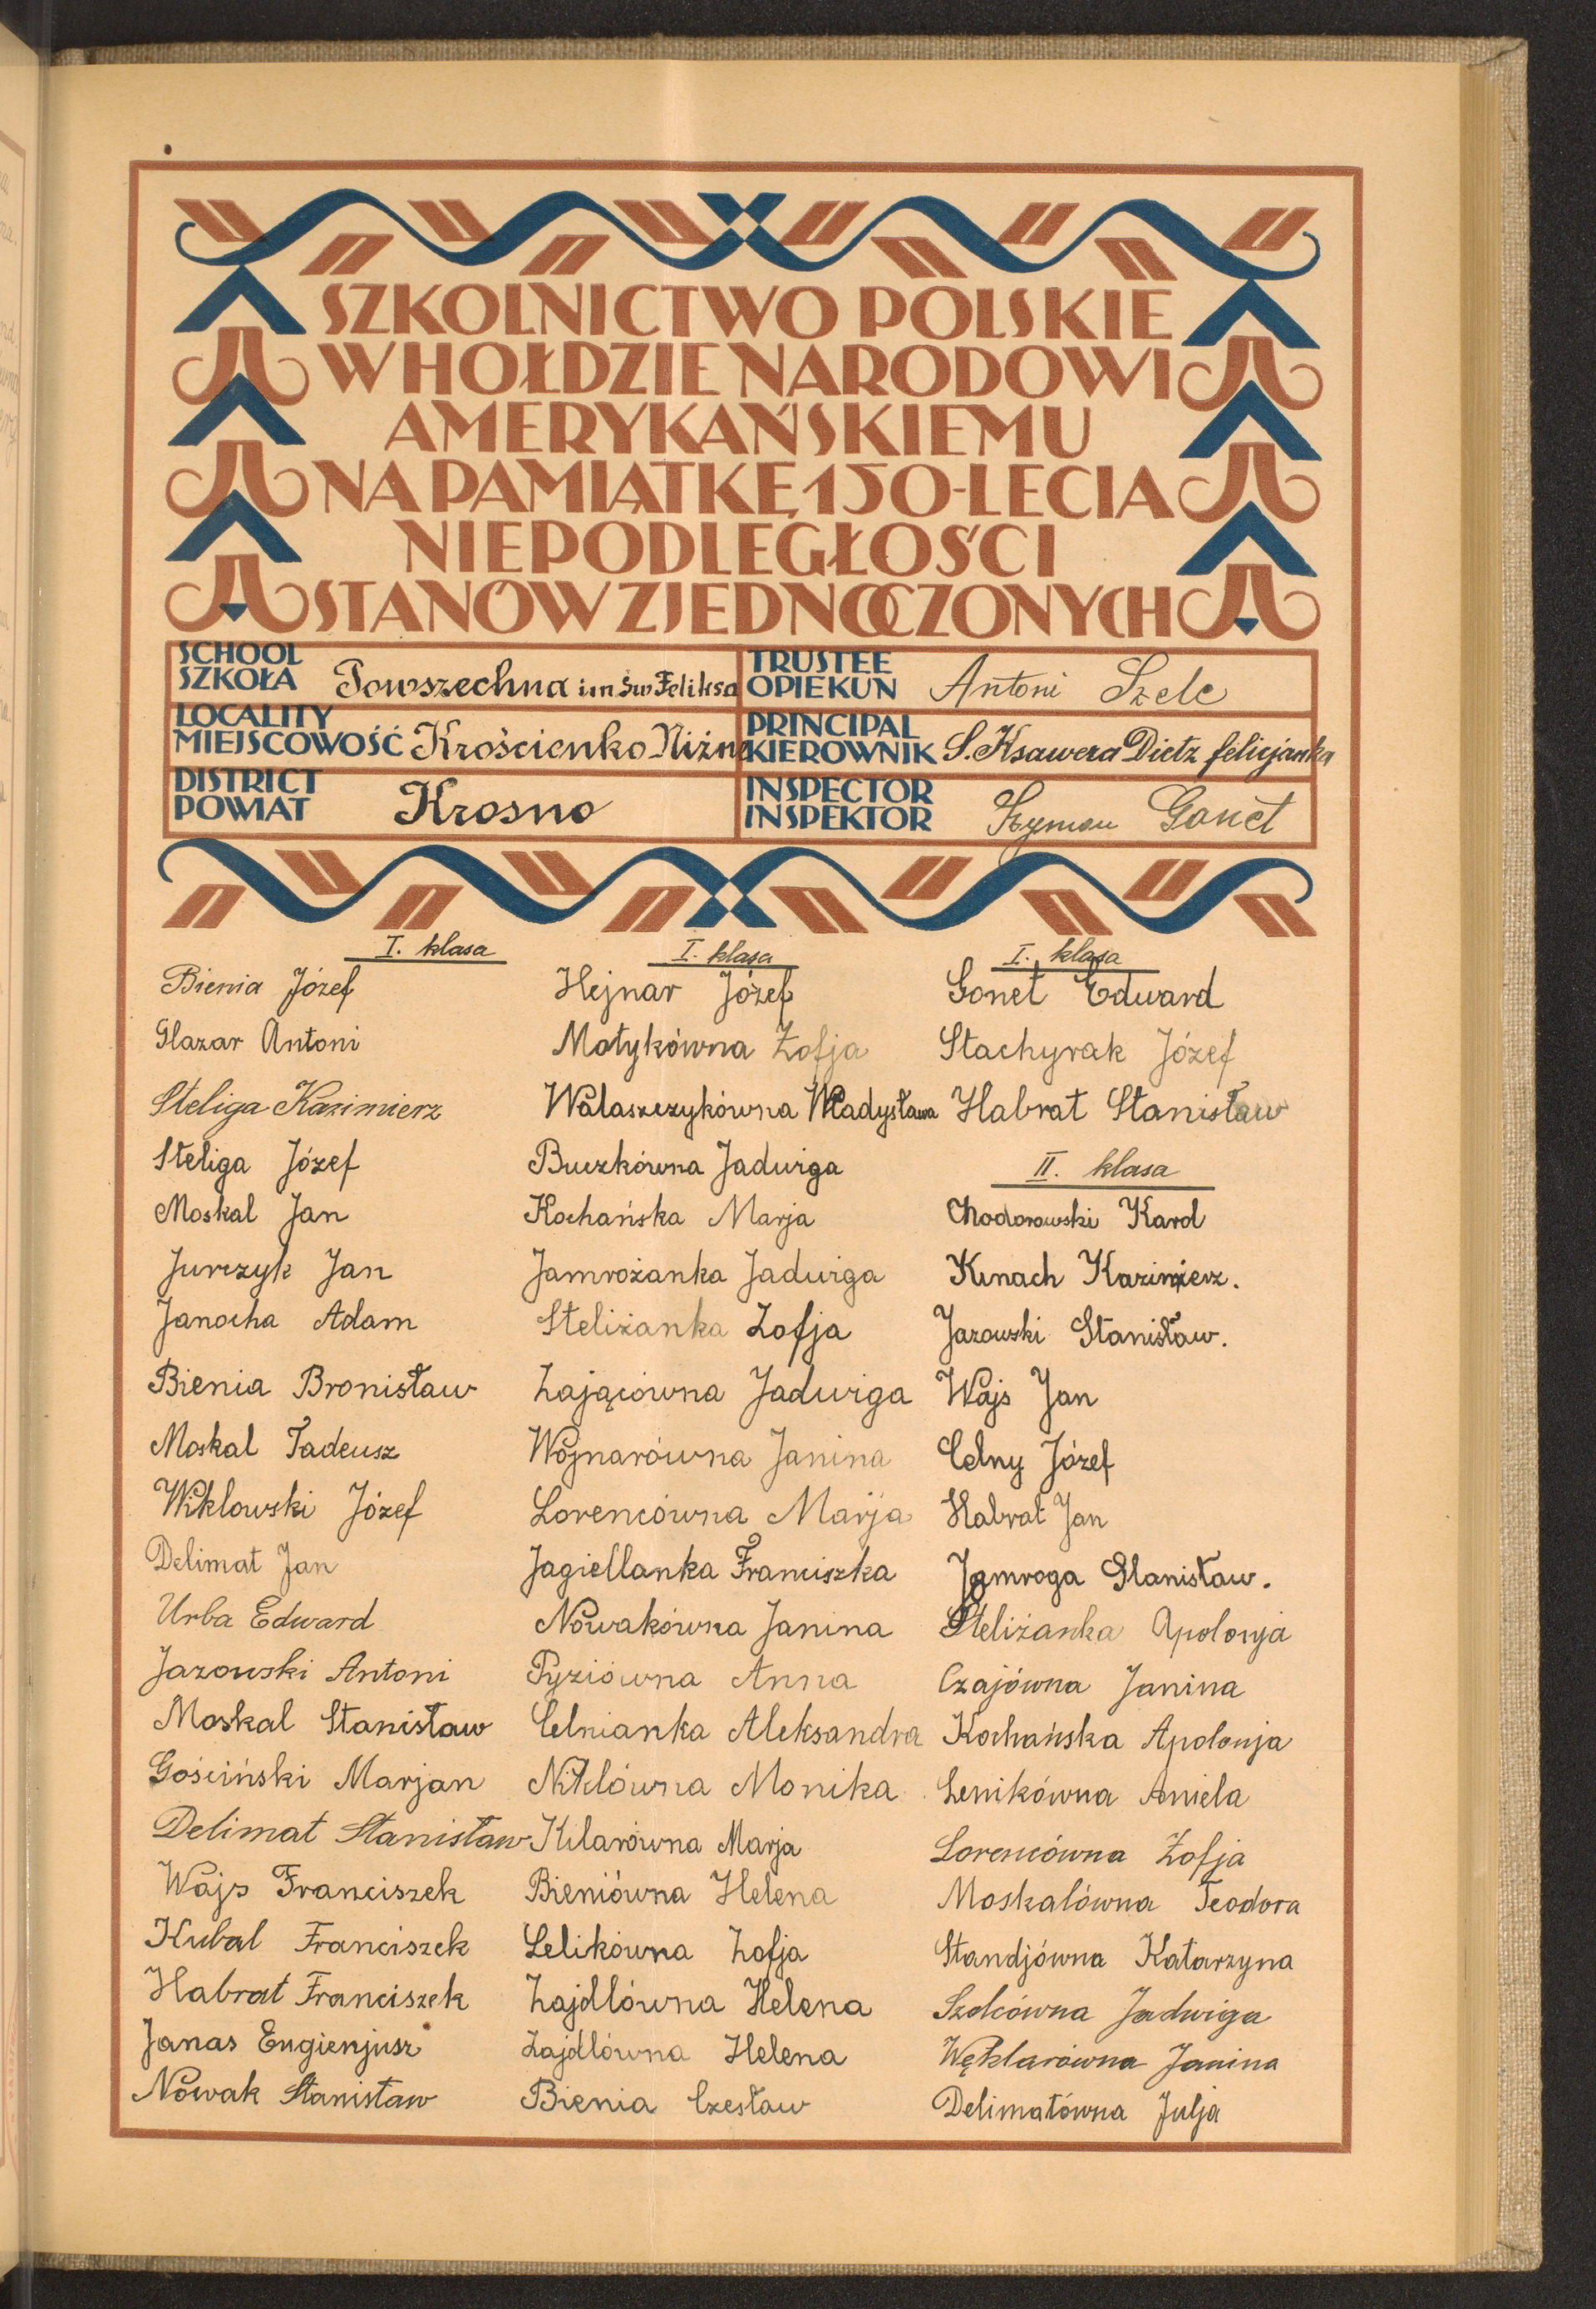 SZKOLNICTWO POLSKIE
W HOŁDZIE NARODOWI
AMERYKAŃSKIEMU
NA PAMIĄTKĘ 150-LECIA
NIEPODLEGŁOŚCI
STANÓW ZJEDNOCZONYCH
SCHOOL
SZKOŁA Powszechna im Św Feliksa
TRUSTEE
OPIEKUN Antoni Szele
LOCALITY
MIEJSCOWOŚĆ Krościenko Niżne
PRINCIPAL
KIEROWNIK S. Ksawera Dietz felicjanka
DISTRICT
POWIAT Krosno
INSPECTOR
INSPEKTOR Szymon Gonet
I. klasa
Bienia Józef
Glazar Antoni
Steliga Kazimierz
Steliga Józef
Moskal Jan
Jurczyk Jan
Janocha Adam
Bienia Bronisław
Moskal Tadeusz
Wiklowski Józef
Delimat Jan
Urba Edward
Jazowski Antoni
Moskal Stanisław
Gościński Marjan
Delimat Stanisław
Wajs Franciszek
Kubal Franciszek
Habrat Franciszek
Janas Eugienjusz
Nowak Stanisław
I. klasa
Hejnar Józef
Motykówna Zofja
Walaszczykówna Władysława
Buczkówna Jadwiga
Kochańska Marja
Jamrożanka Jadwiga
Steliżanka Zofja
Zającówna Jadwiga
Wojnarówna Janina
Lorencówna Marja
Jagiellanka Franciszka
Nowakówna Janina
Pyziówna Anna
Celnianka Aleksandra
Niklówna Monika
Kilarówna Marja
Bieniówna Helena
Lelikówna Zofja
Zajdlówna Helena
Zajdlówna Helena
Bienia Czesław
I. klasa
Gonet Edward
Stachyrak Józef
Habrat Stanisław
II. klasa
Chodorowski Karol
Kinach Kazimierz.
Jazowski Stanisław.
Wajs Jan
Celny Józef
Habrat Jan
Jamroga Stanisław.
Steliżanka Apolonja
Czajówna Janina
Kochańska Apolonja
Lenikówna Aniela
Lorencówna Zofja
Moskalówna Teodora
Standjówna Katarzyna
Szolcówna Jadwiga
Węklarówna Janina
Delimatówna Julja